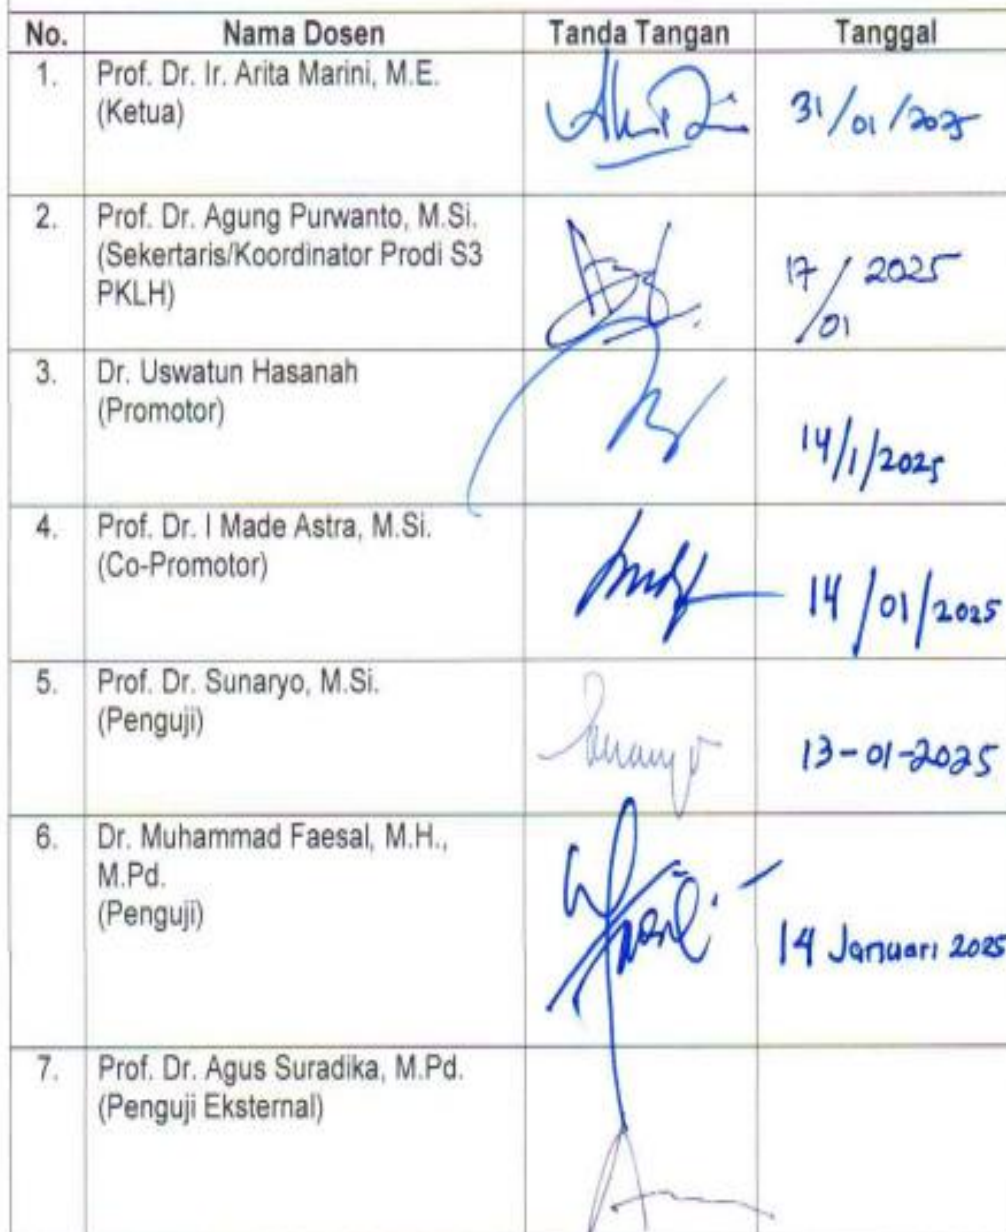 No. Nama Dosen Tanda Tangan Tanggal
1. Prof. Dr. Ir. Arita Marini, M.E.
(Ketua)
31/01/2025
2. Prof. Dr. Agung Purwanto, M.Si.
(Sekertaris/Koordinator Prodi S3
PKLH)
17/01 2025
3. Dr. Uswatun Hasanah
(Promotor)
14/1/2025
4. Prof. Dr. I Made Astra, M.Si.
(Co-Promotor)
14/01/2025
5. Prof. Dr. Sunaryo, M.Si.
(Penguji)
Sunaryo
13-01-2025
6. Dr. Muhammad Faesal, M.H.,
M.Pd.
(Penguji)
14 Januari 2025
7. Prof. Dr. Agus Suradika, M.Pd.
(Penguji Eksternal)